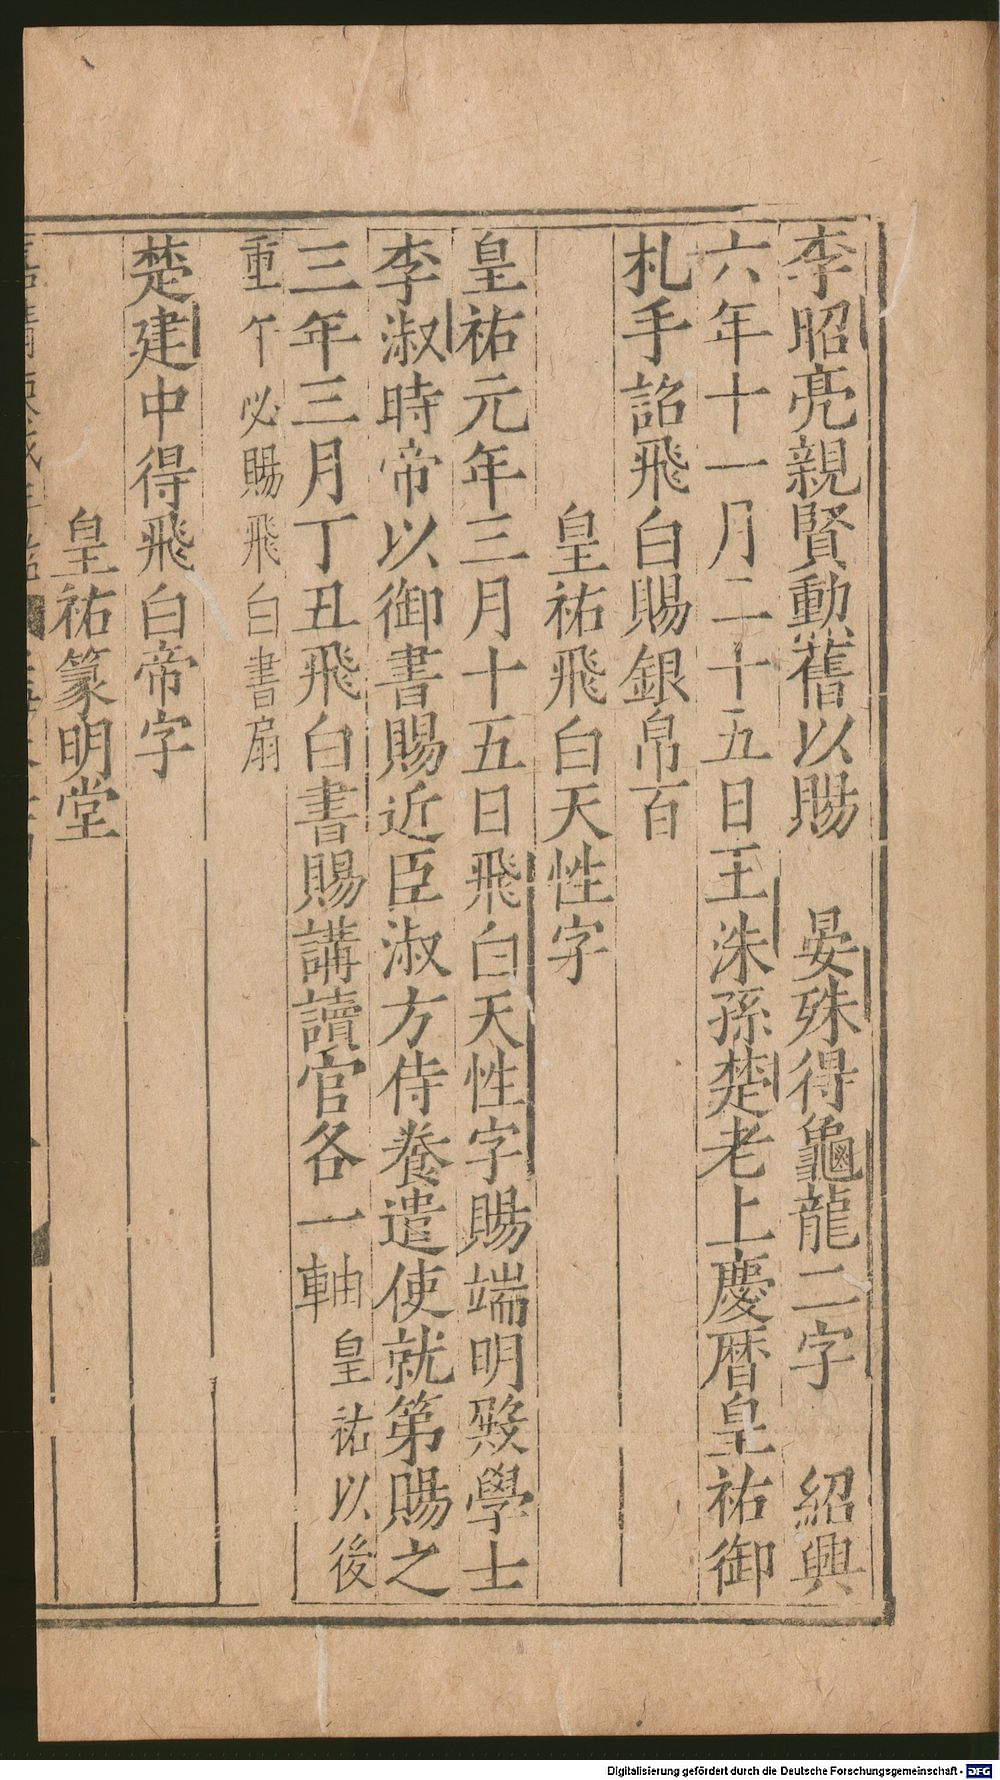 李昭亮親賢動舊以賜　晏殊得龜龍二字　紹興
六年十一月二十五日王洙孫楚老上慶曆皇祐御
札手詔飛白賜銀帛百
皇祐飛白天性字
皇祐元年三月十五日飛白天性字賜端明殿學士
李淑時帝以御書賜近臣淑方侍養遣使就第賜之
三年三月丁丑飛白書賜講讀官各一軸皇祐以後
重午必賜飛白書扇
楚建中得飛白帝字
皇祐篆明堂
Digitalisierung gefördert durch die Deutsche Forschungsgemeinschaft - DFG